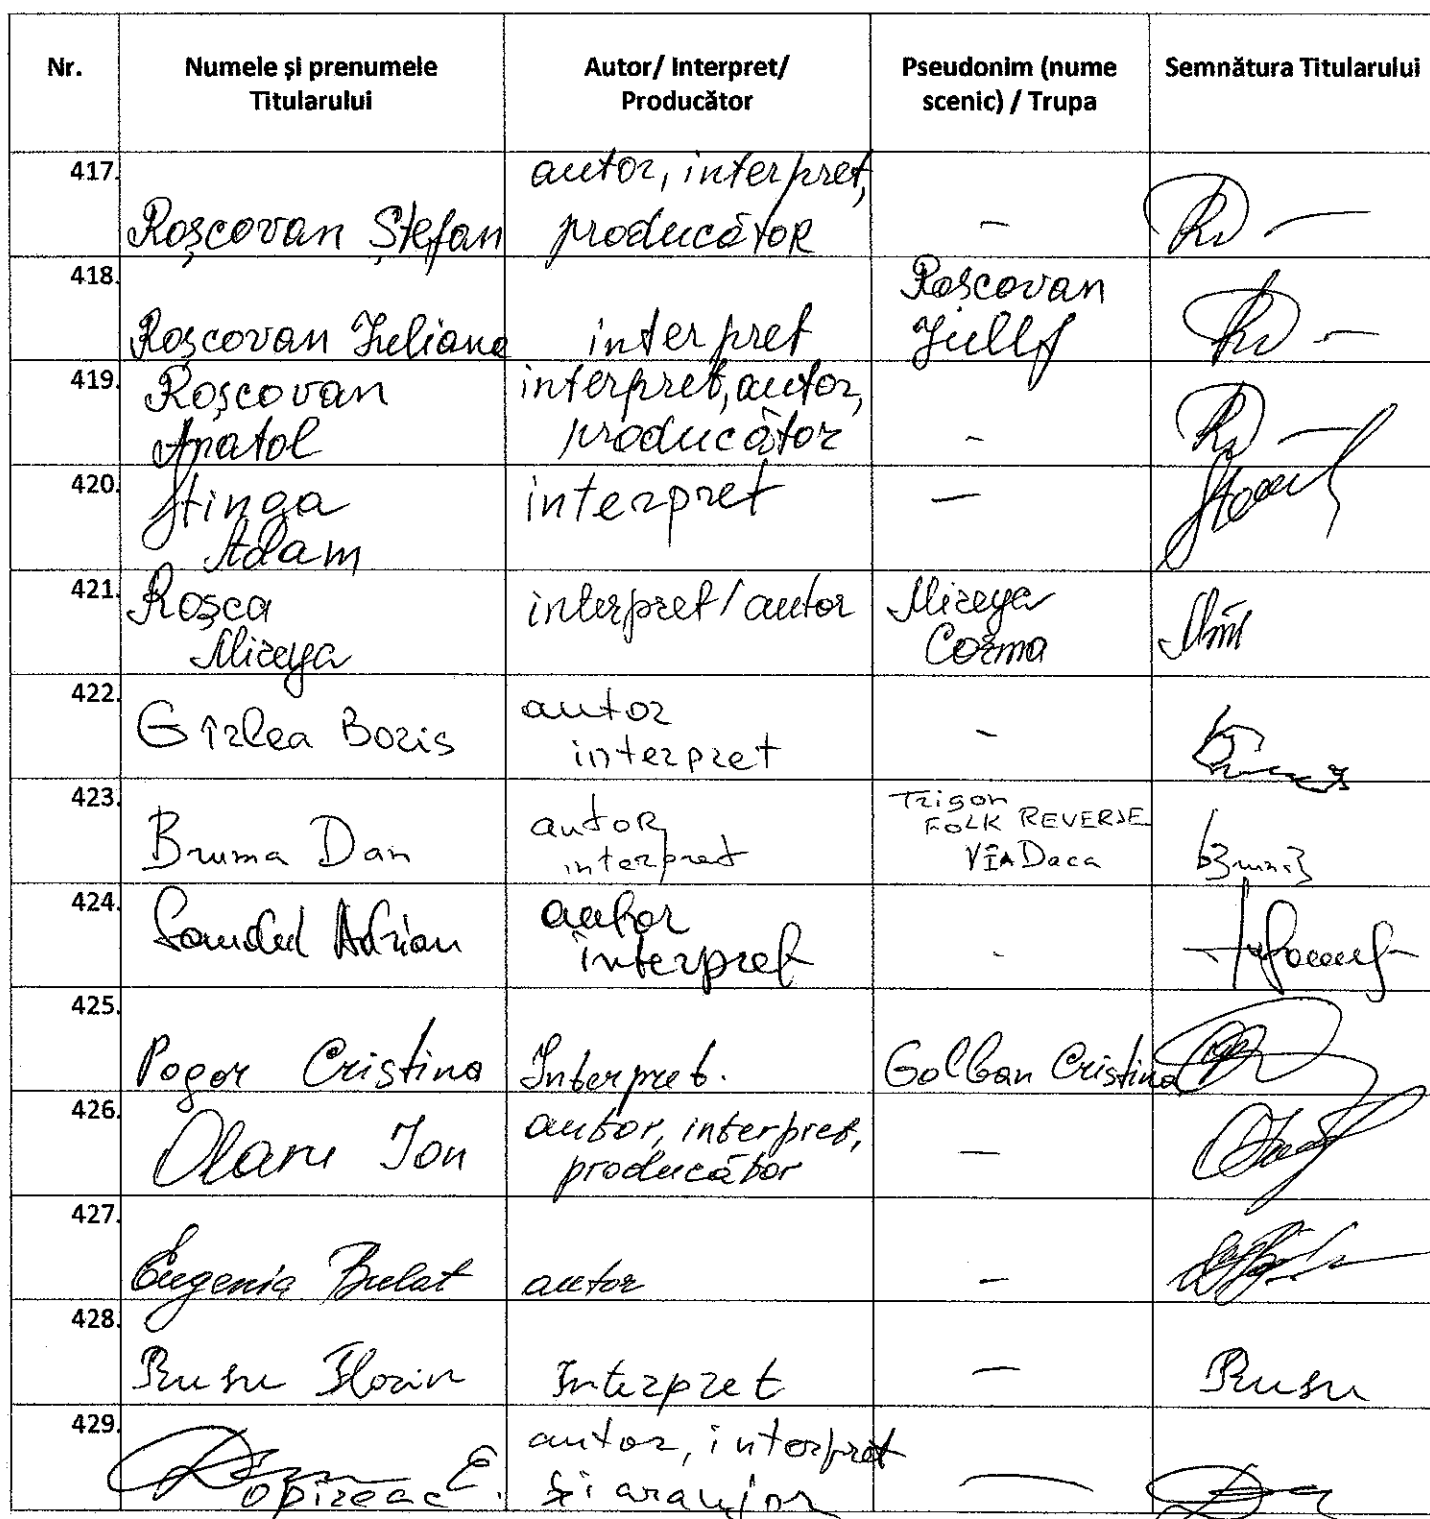 Nr. Numele și prenumele Titularului Autor/ Interpret/ Producător Pseudonim (nume scenic) / Trupa Semnătura Titularului
417. Roșcovan Ștefan autor, interpret, producător –
418. Roșcovan Iuliana interpret Roscovan
419. Roșcovan Anatol interpret, autor, producător -
420. Stinga Adam interpret —
421. Roșca Mireya interpret/autor Mireya Cozma
422. Gîrlea Boris autor interpret -
423. Bruma Dan autor, interpret Trigon FOLK REVERSE VÎA Daca
424. Sandul Adrian autor interpret -
425. Pogor Cristina Interpret. Golban Cristina
426. Olaru Ion autor, interpret, producător —
427. Eugenia Bulat autor –
428. Rusu Florin Interpret — Rusu
429. E. autor, interpret și aranjor —